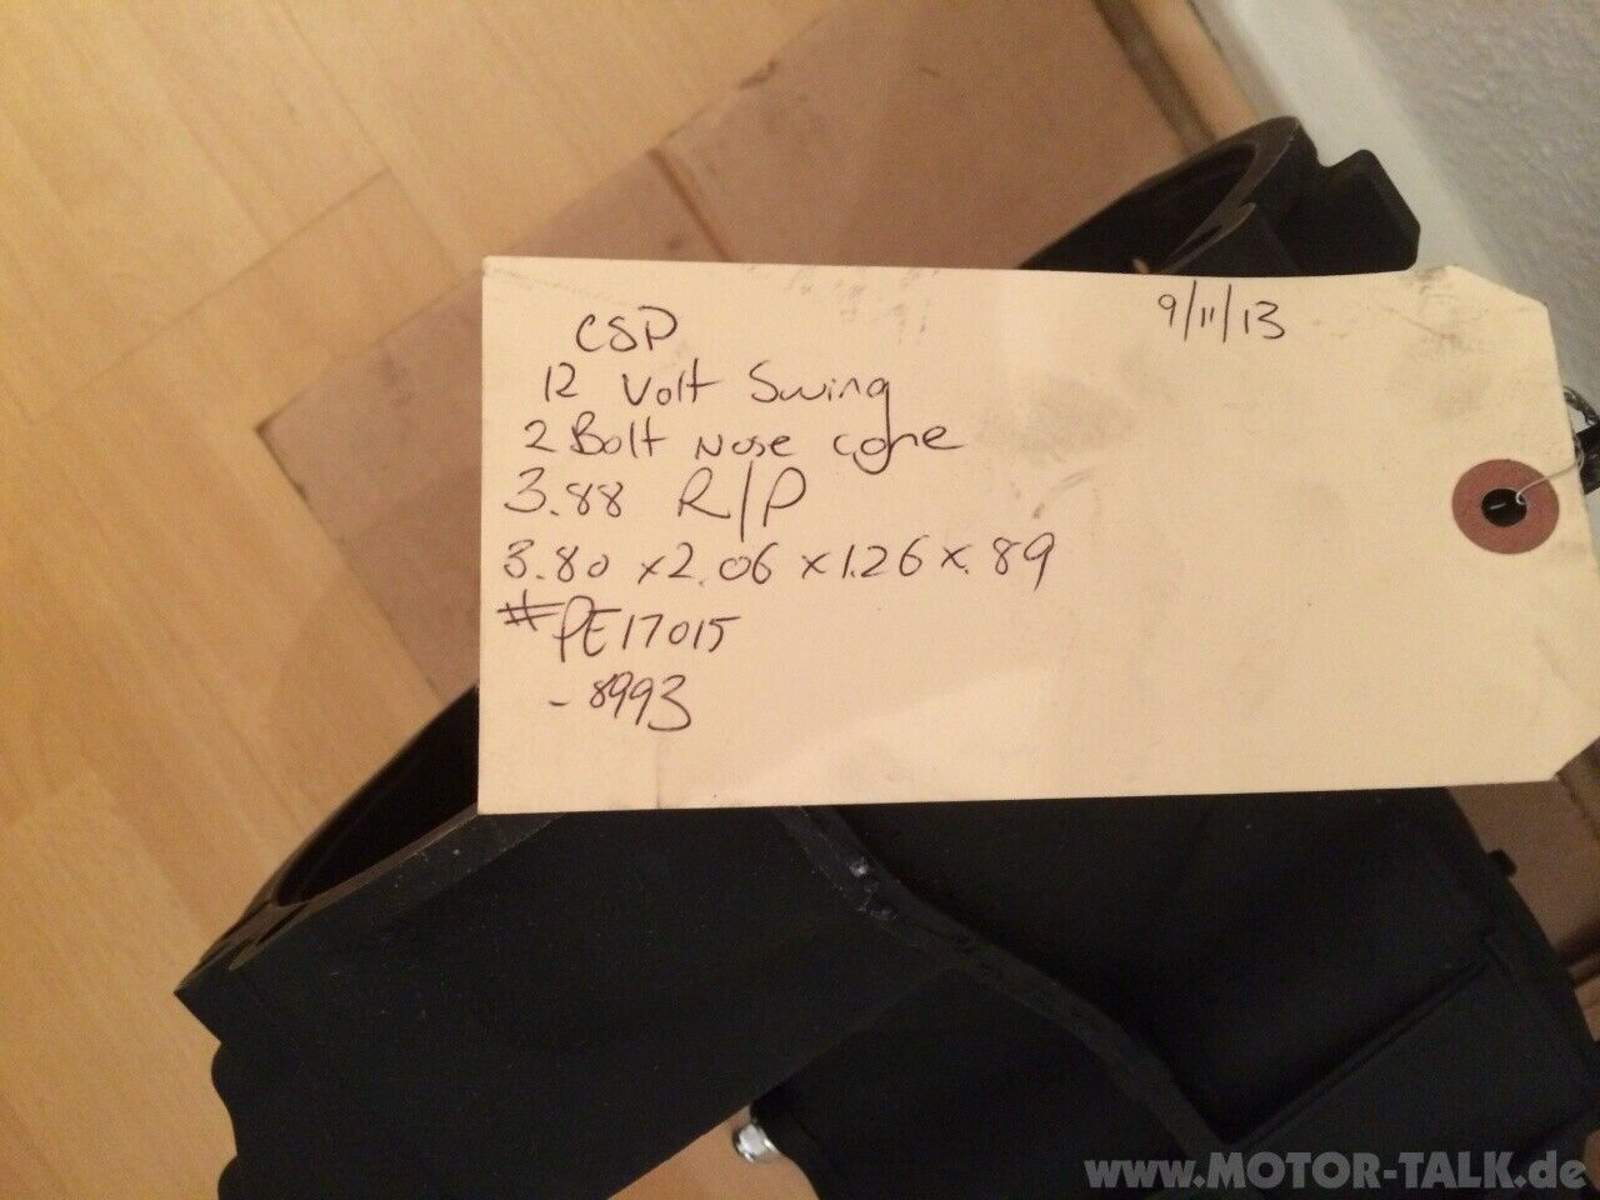 9/11/13
CSP
12 Volt Swing
2 Bolt Nose cone
3.88 R/P
3.80 x 2.06 x 1.26 x .89
#PE17015
- 8993
www.MOTOR-TALK.de